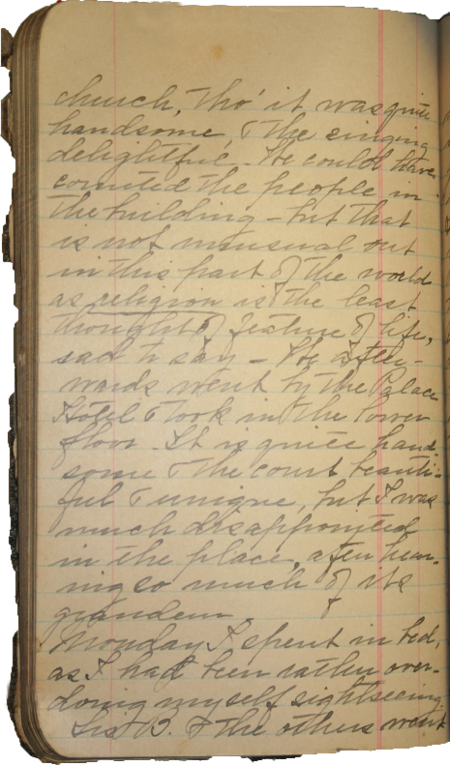 church, tho' it was quite
handsome, & the singing
delightful. We could have
counted the people in
the building – but that
is not unusual out
in this part of the world
as religion is the least
thought of feature of life,
sad to say – We after-
wards went by the Palace
Hotel & took in the lower
floor. It is quite hand-
some & the court beauti-
ful & unique, but I was
much disappointed
in the place, after hear-
ing so much of its
grandeur.
Monday I spent in bed,
as I had been rather over-
doing myself sightseeing.
B. & the others went